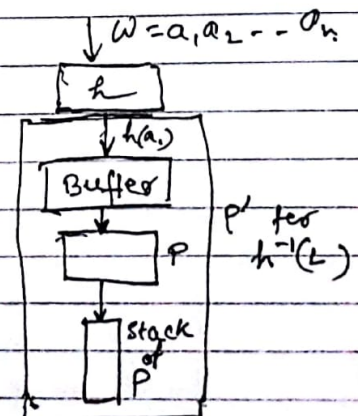 w = a₁ a₂ -- - aₙ
h
h(a₁)
Buffer
P
P' for
h⁻¹(L)
stack
of
P